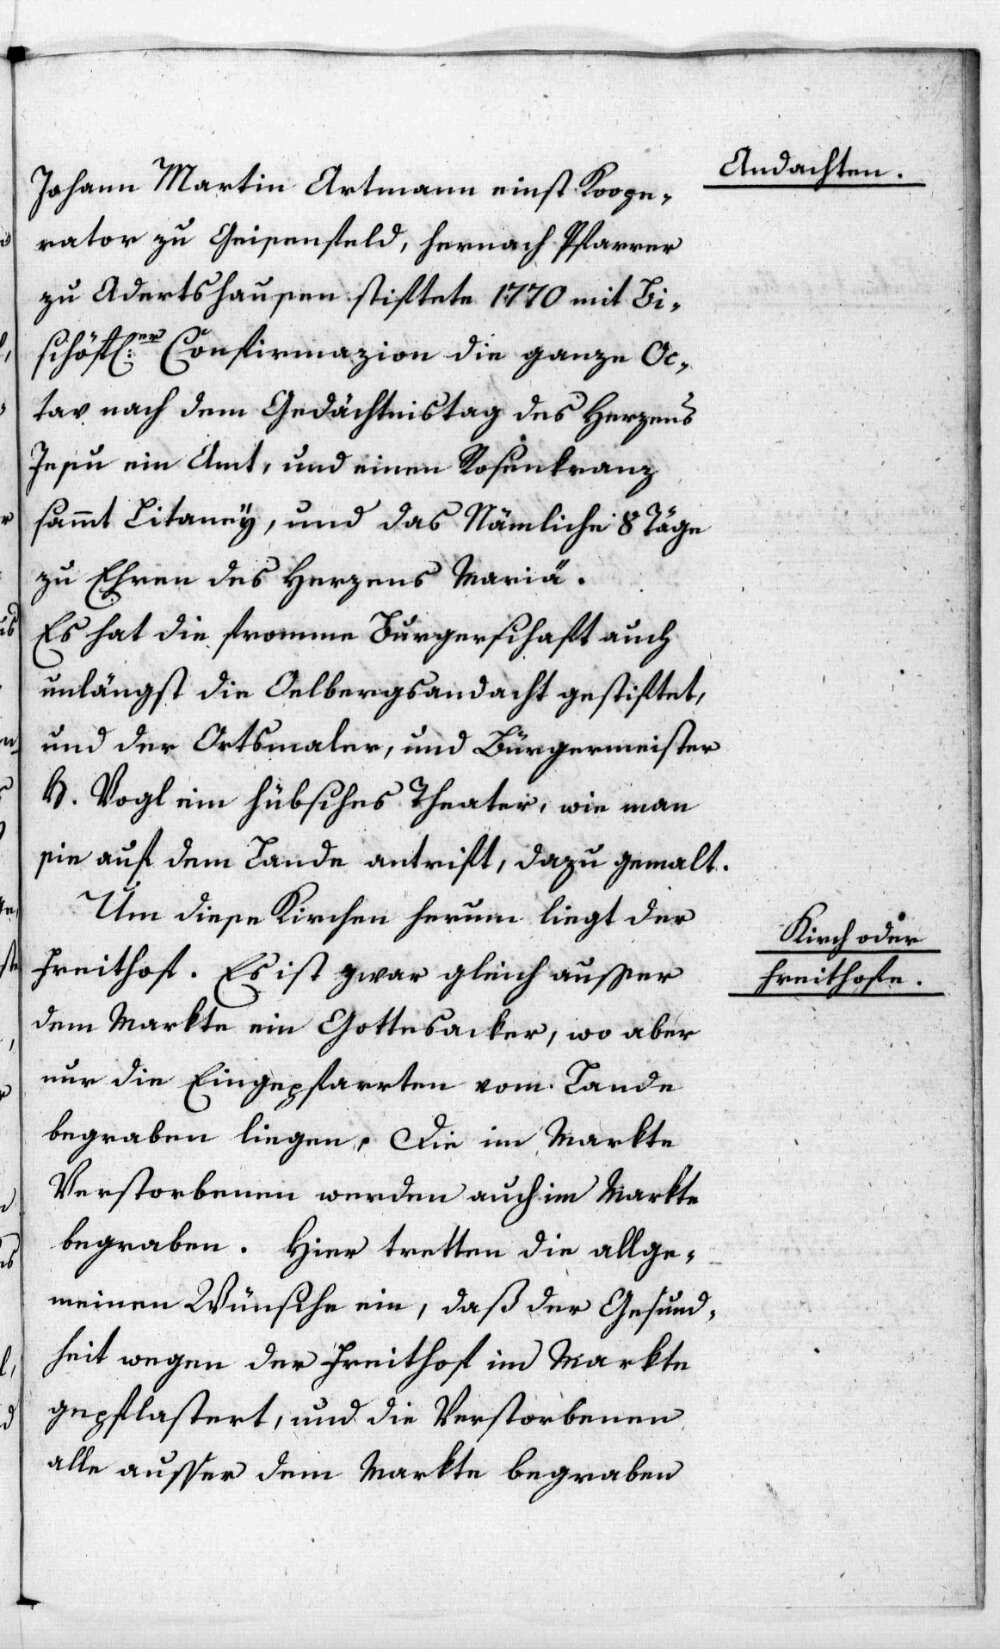 Andachten.
Johann Martin Artmann einst Koope-
rator zu Geisenfeld, hernach Pfarrer
zu Adertshausen stiftete 1770 mit Bi-
schöfl:er Confirmazion die ganze Oc-
tav nach dem Gedächtnistag des Herzens
Jesu ein Amt, und einen Rosenkranz
sam̄t Litaneÿ, und das Nämliche 8 Täge
zu Ehren des Herzens Mariä.
Es hat die fromme Burgerschaft auch
unlängst die Oelbergsandacht gestiftet,
und der Ortsmaler, und Bürgermeister
H. Vogl ein hübsches Theater, wie man
sie auf dem Lande antrift, dazu gemalt.
Kirch oder
Freithofe.
Um diese Kirchen herum liegt der
Freithof. Es ist zwar gleich ausser
dem Markte ein Gottesacker, wo aber
nur die Eingepfarrten vom Lande
begraben liegen. Die im Markte
Verstorbenen werden auch im Markte
begraben. Hier tretten die allge-
meinen Wünsche ein, daß der Gesund-
heit wegen der Freithof im Markte
gepflastert, und die Verstorbenen
alle ausser dem Markte begraben